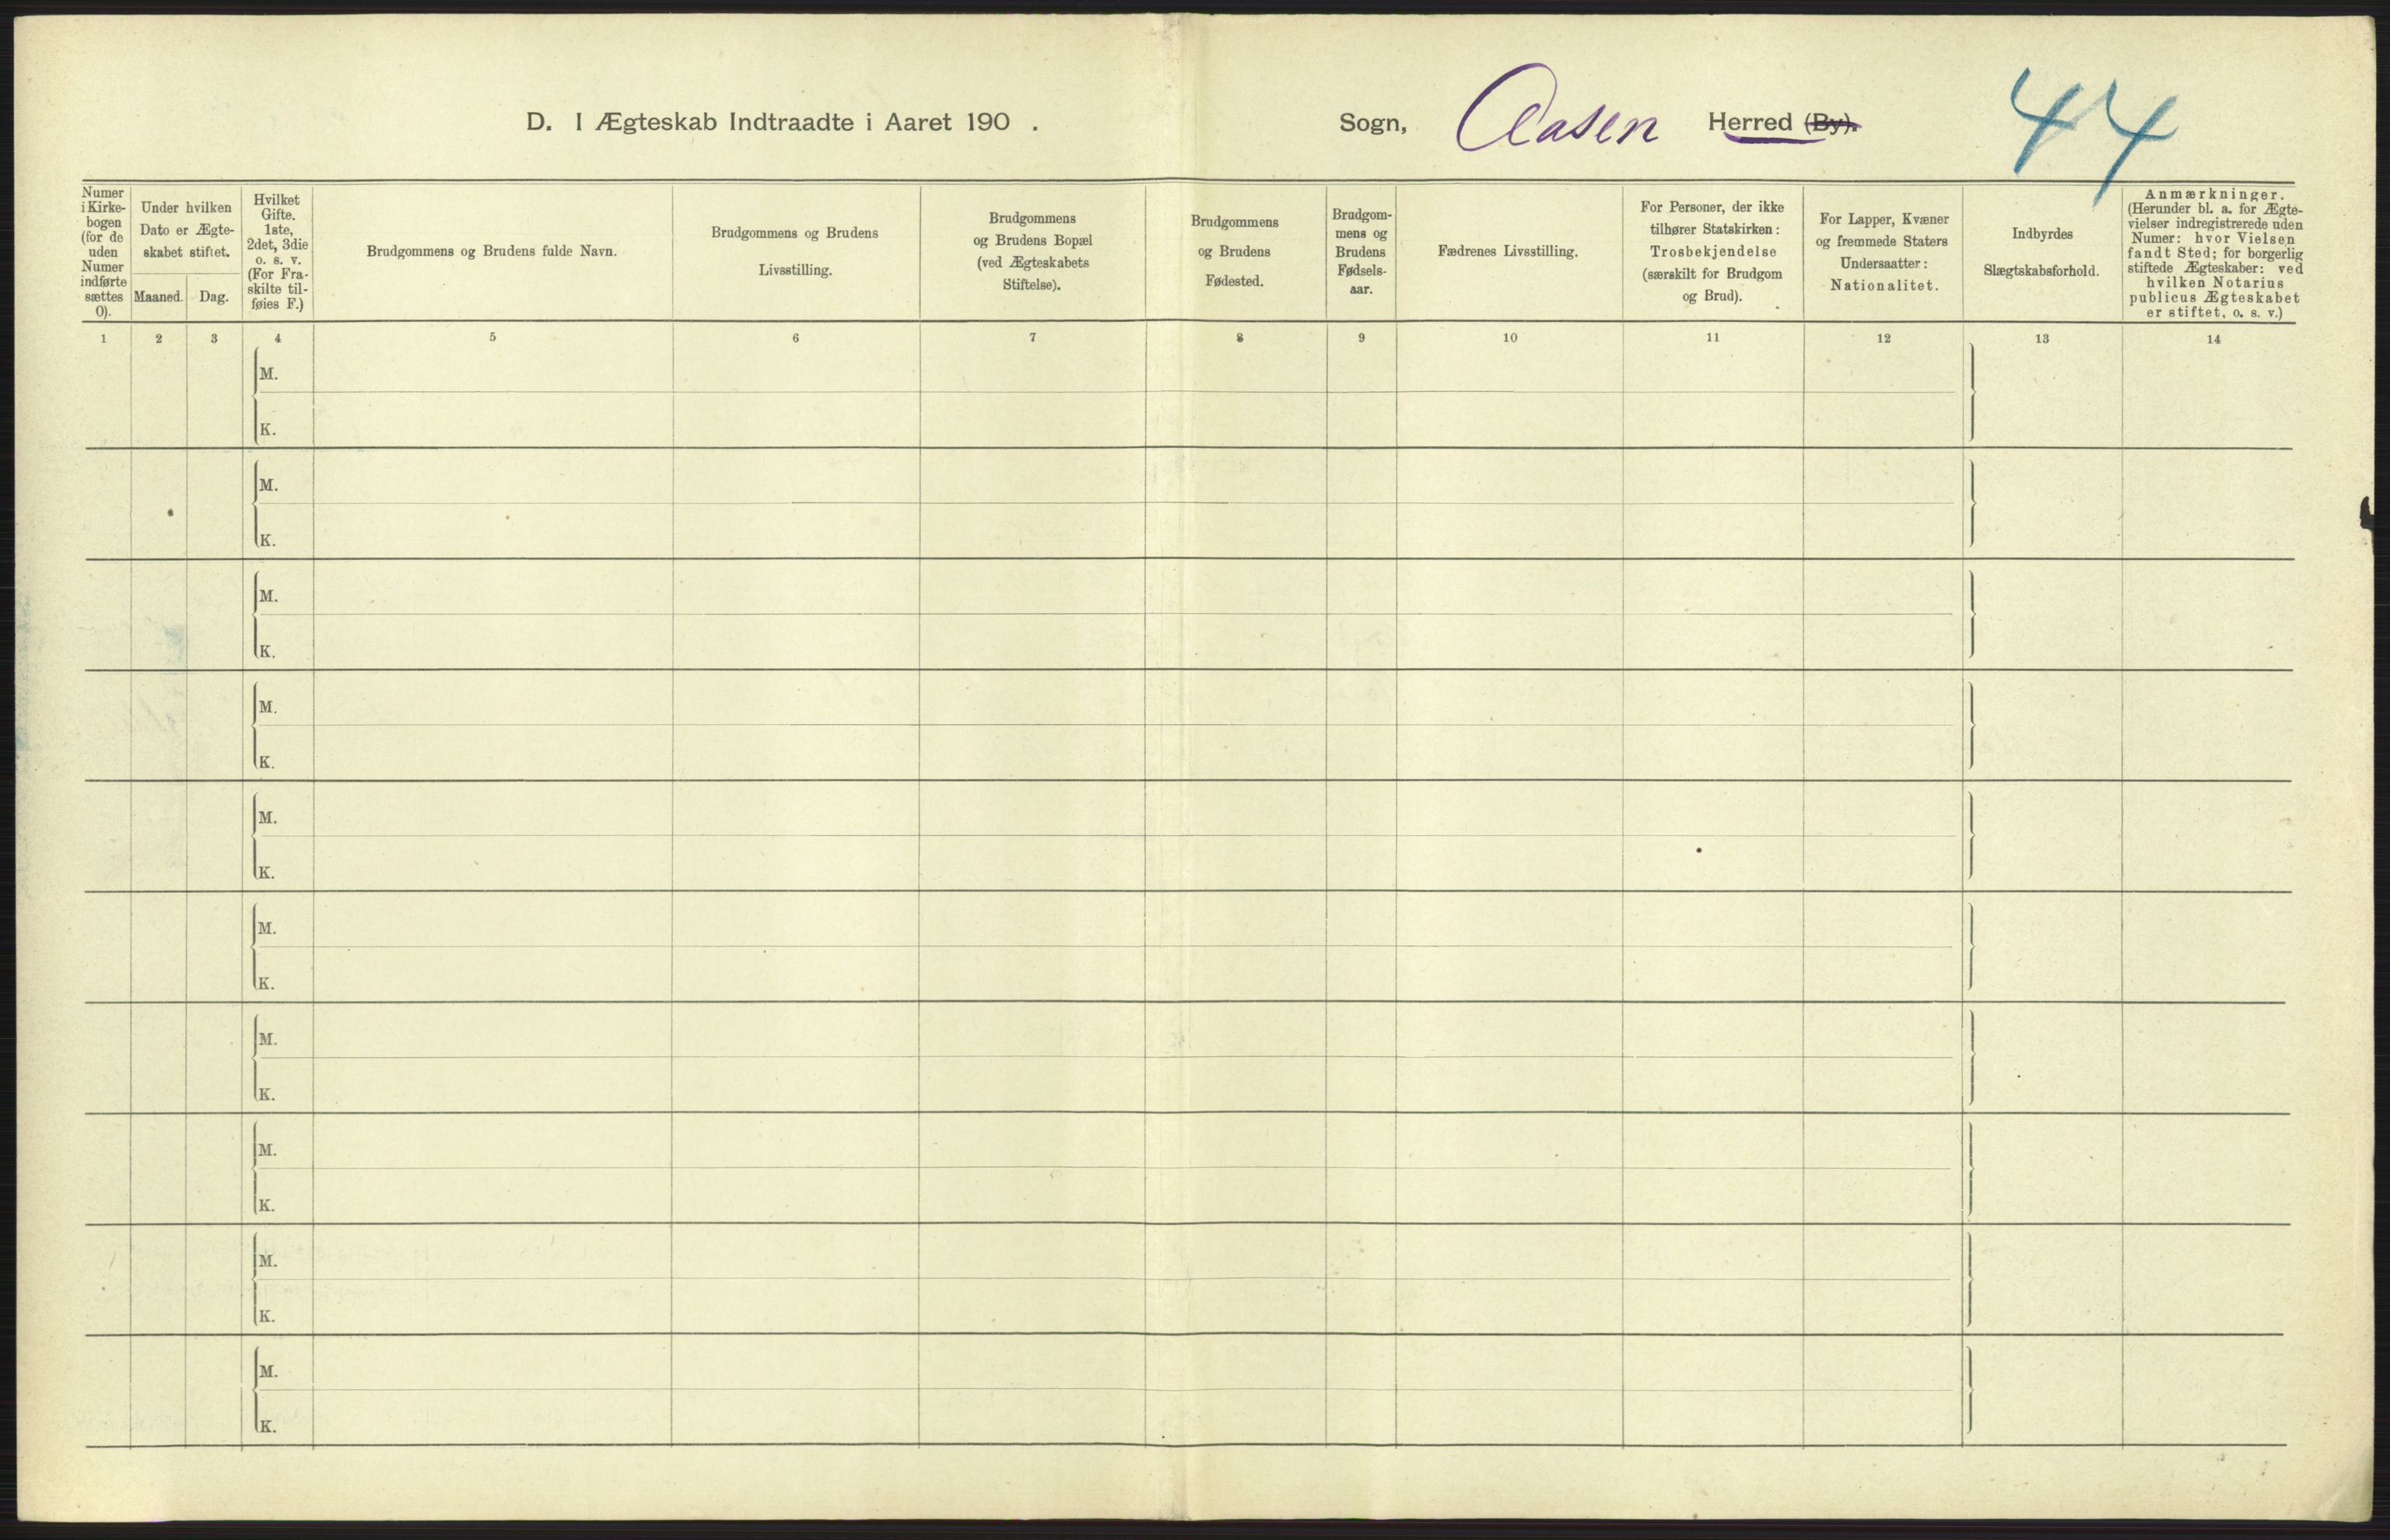 D. I Ægteskab Indtraadte i Aaret 190 . Sogn, Aasen Herred (By). 44
Numer
i Kirke-
bogen
(for de
uden
Numer
indførte
sættes
0).
Under hvilken
Dato er Ægte-
skabet stiftet.
Maaned. Dag.
Hvilket
Gifte.
1ste,
2det, 3die
o. s. v.
(For Fra-
skilte til-
føies F.)
Brudgommens og Brudens fulde Navn.
Brudgommens og Brudens
Livsstilling.
Brudgommens
og Brudens Bopæl
(ved Ægteskabets
Stiftelse).
Brudgommens
og Brudens
Fødested.
Brudgom-
mens og
Brudens
Fødsels-
aar.
Fædrenes Livsstilling.
For Personer, der ikke
tilhører Statskirken:
Trosbekjendelse
(særskilt for Brudgom
og Brud).
For Lapper, Kvæner
og fremmede Staters
Undersaatter:
Nationalitet.
Indbyrdes
Slægtskabsforhold.
Anmærkninger.
(Herunder bl. a. for Ægte-
vielser indregistrerede uden
Numer: hvor Vielsen
fandt Sted; for borgerlig
stiftede Ægteskaber: ved
hvilken Notarius
publicus Ægteskabet
er stiftet, o. s. v.)
1 2 3 4 5 6 7 8 9 10 11 12 13 14
M.
K.
M.
K.
M.
K.
M.
K.
M.
K.
M.
K.
M.
K.
M.
K.
M.
K.
M.
K.